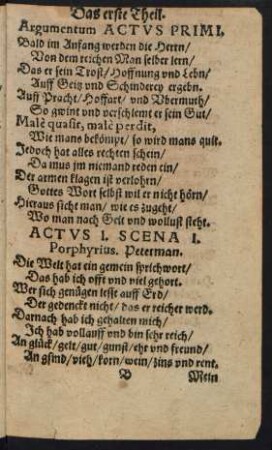 Das erste Theil.
Argumentum ACTVS PRIMI.
Bald im Anfang werden die Herrn/
Von dem reichen Man selber lern/
Das er sein Trost/ Hoffnung vnd Lebn/
Auff Geitz vnd Schinderey ergebn.
Auff Pracht/ Hoffart/ vnd Vbermuth/
So gwint vnd verschlemt er sein Gut/
Malè quasit, malè perdit,
Wie mans bekömpt/ so wird mans quit.
Jedoch hat alles rechten schein/
Da mus jm niemand reden ein/
Der armen klagen ist verlohrn/
Gottes Wort selbst wil er nicht hörn/
Hieraus sicht man/ wie es zugeht/
Wo man nach Geit vnd wollust steht.
ACTVS I. SCENA I.
Porphyrius. Peterman.
Die Welt hat ein gemein sprichwort/
Das hab ich offt vnd viel gehort.
Wer sich genügen lesst auff Erd/
Der gedenckt nicht/ das er reicher werd.
Darnach hab ich gehalten mich/
Ich hab vollauff vnd bin sehr reich/
An glück/ gelt/ gut/ gunst/ ehr vnd freund/
An gsind/ vieh/ korn/ wein/ zins vnd rent.
B Mein